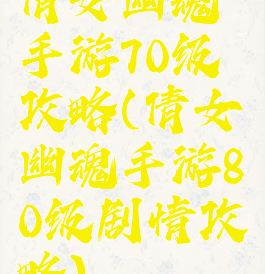 倩女幽魂
手游70级
攻略(倩女
幽魂手游8
0级剧情攻
略)